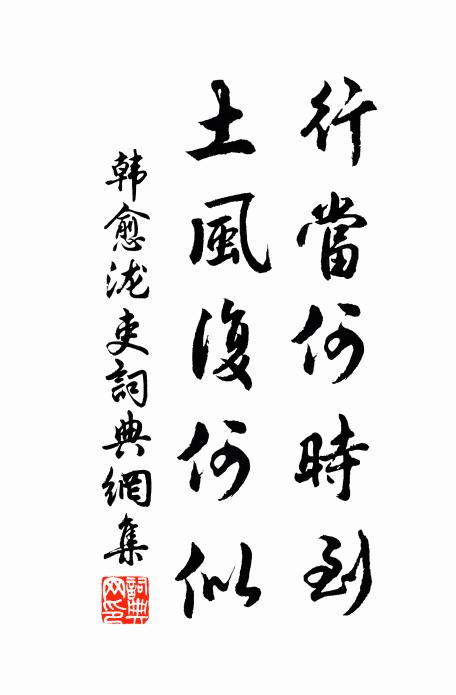 行當何時到
土風復何似
韩愈泷吏詞典網集
詞典网印